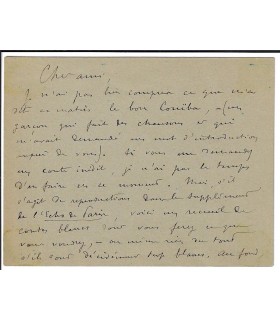 Cher ami,
Je n'ai pas bien compris ce que m'a
dit ce matin le bon
garçon qui fait des chansons et qui
m'avait demandé un mot d'introduction
auprès de vous. Si vous me demandez
un conte inédit, je n'ai pas le temps
d'en faire en ce moment. Mais, s'il
s'agit de reproductions dans le supplément
de l'Écho de Paris, voici un recueil de
contes blancs dont vous ferez ce que
vous voudrez, - ou même rien du tout
s'ils sont décidément trop blancs. Au fond,